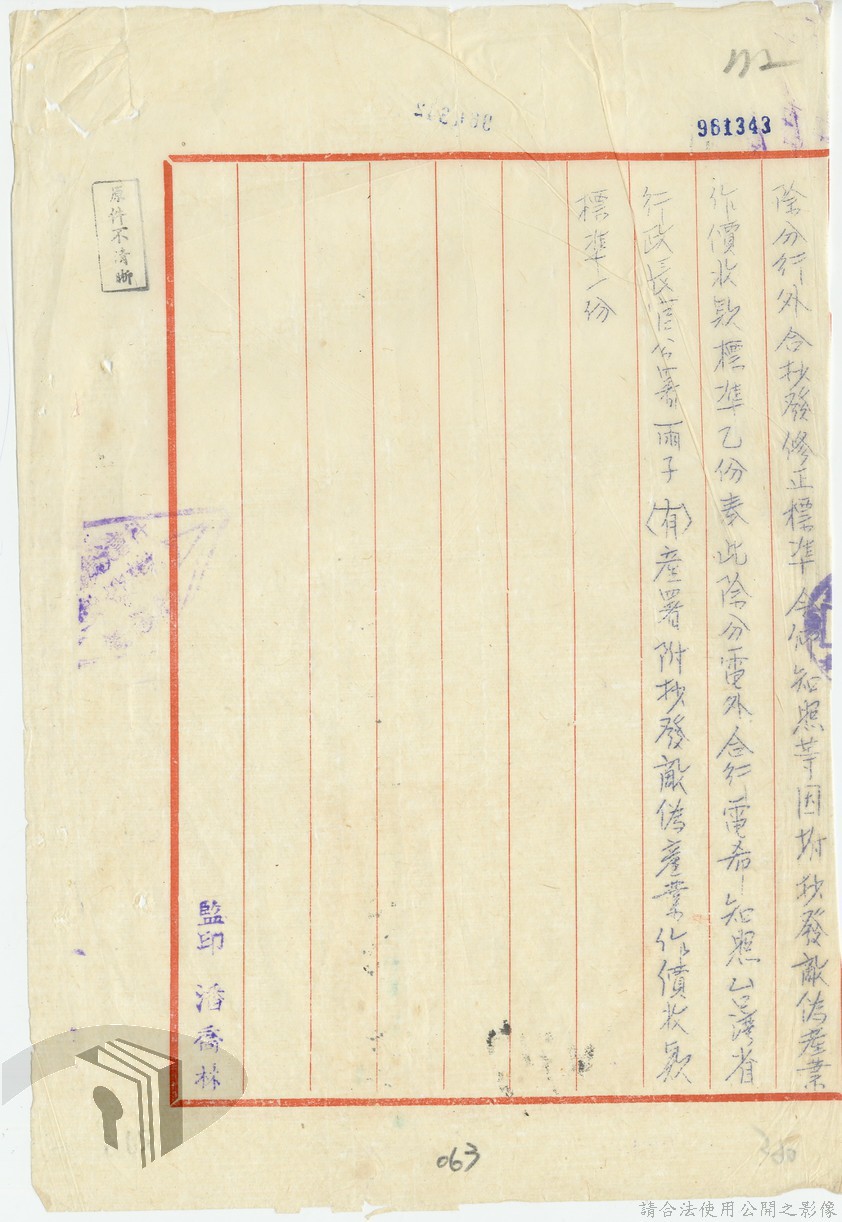 112
981343
除分行外合抄發修正標准令仰知照等因附抄發敵偽產業
作價收款標準乙份奉此除分電外合行電希知照台灣省
行政長官公署丙子(有)產署附抄發敵偽產業作價收款
標準一份
原件不清晰
監印 潘喬林
063
請合法使用公開之影像